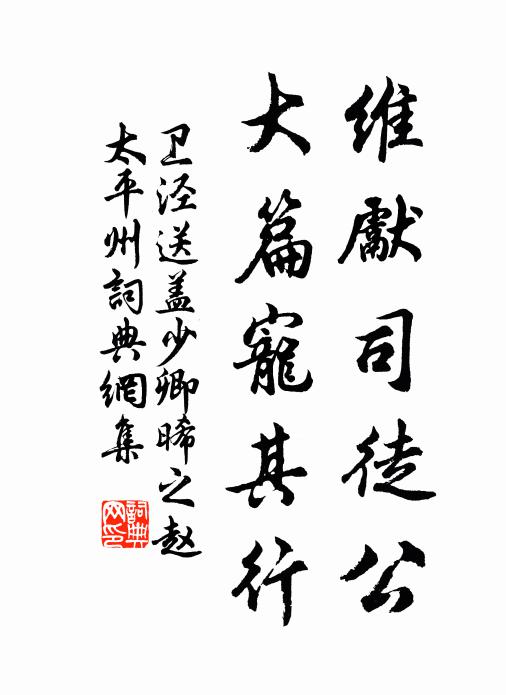 維獻司徒公
大篇寵其行
卫泾送盖少卿晞之赵
太平州詞典網集
詞典網印